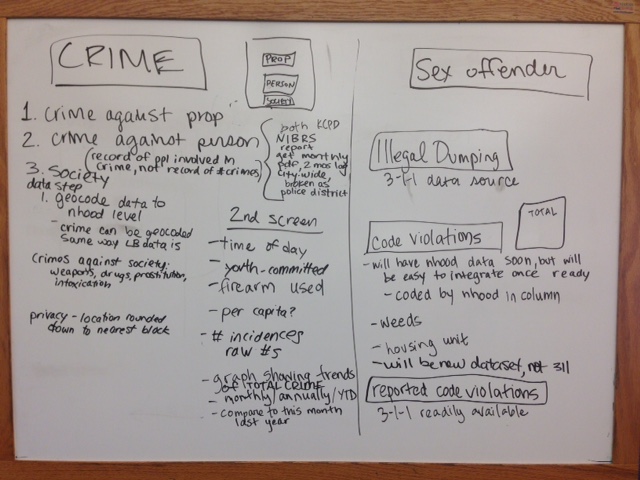 CRIME
PROP
PERSON
SOCIETY
1. Crime against prop
2. Crime against person
(record of ppl involved in
crime, not record of # crimes)
both KCPD
NIBRS
report
get monthly
pdf, 2 mos lag
city-wide,
broken as
police district
3. Society
data step
1. geocode data to
nhood level
- crime can be geocoded
same way LB data is
crimes against society:
weapons, drugs, prostitution,
intoxication
privacy - location rounded
down to nearest block
2nd screen
- time of day
- youth-committed
- firearm used
- per capita?
- # incidences
raw #s
- graph showing trends
of TOTAL CRIME
- monthly/annually/YTD
- compare to this month
last year
Sex offender
Illegal Dumping
3-1-1 data source
TOTAL
code violations
- will have nhood data soon, but will
be easy to integrate once ready
- coded by nhood in column
- weeds
- housing unit
- will be new dataset, not 311
reported code violations
3-1-1 readily available